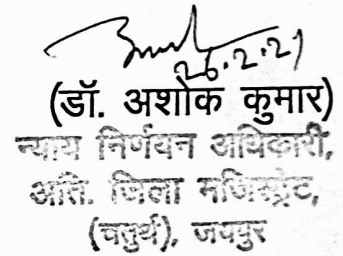 26.2.21
(डॉ. अशोक कुमार)
न्याय निर्णयन अधिकारी,
अति. जिला मजिस्ट्रेट,
(चतुर्थ), जयपुर